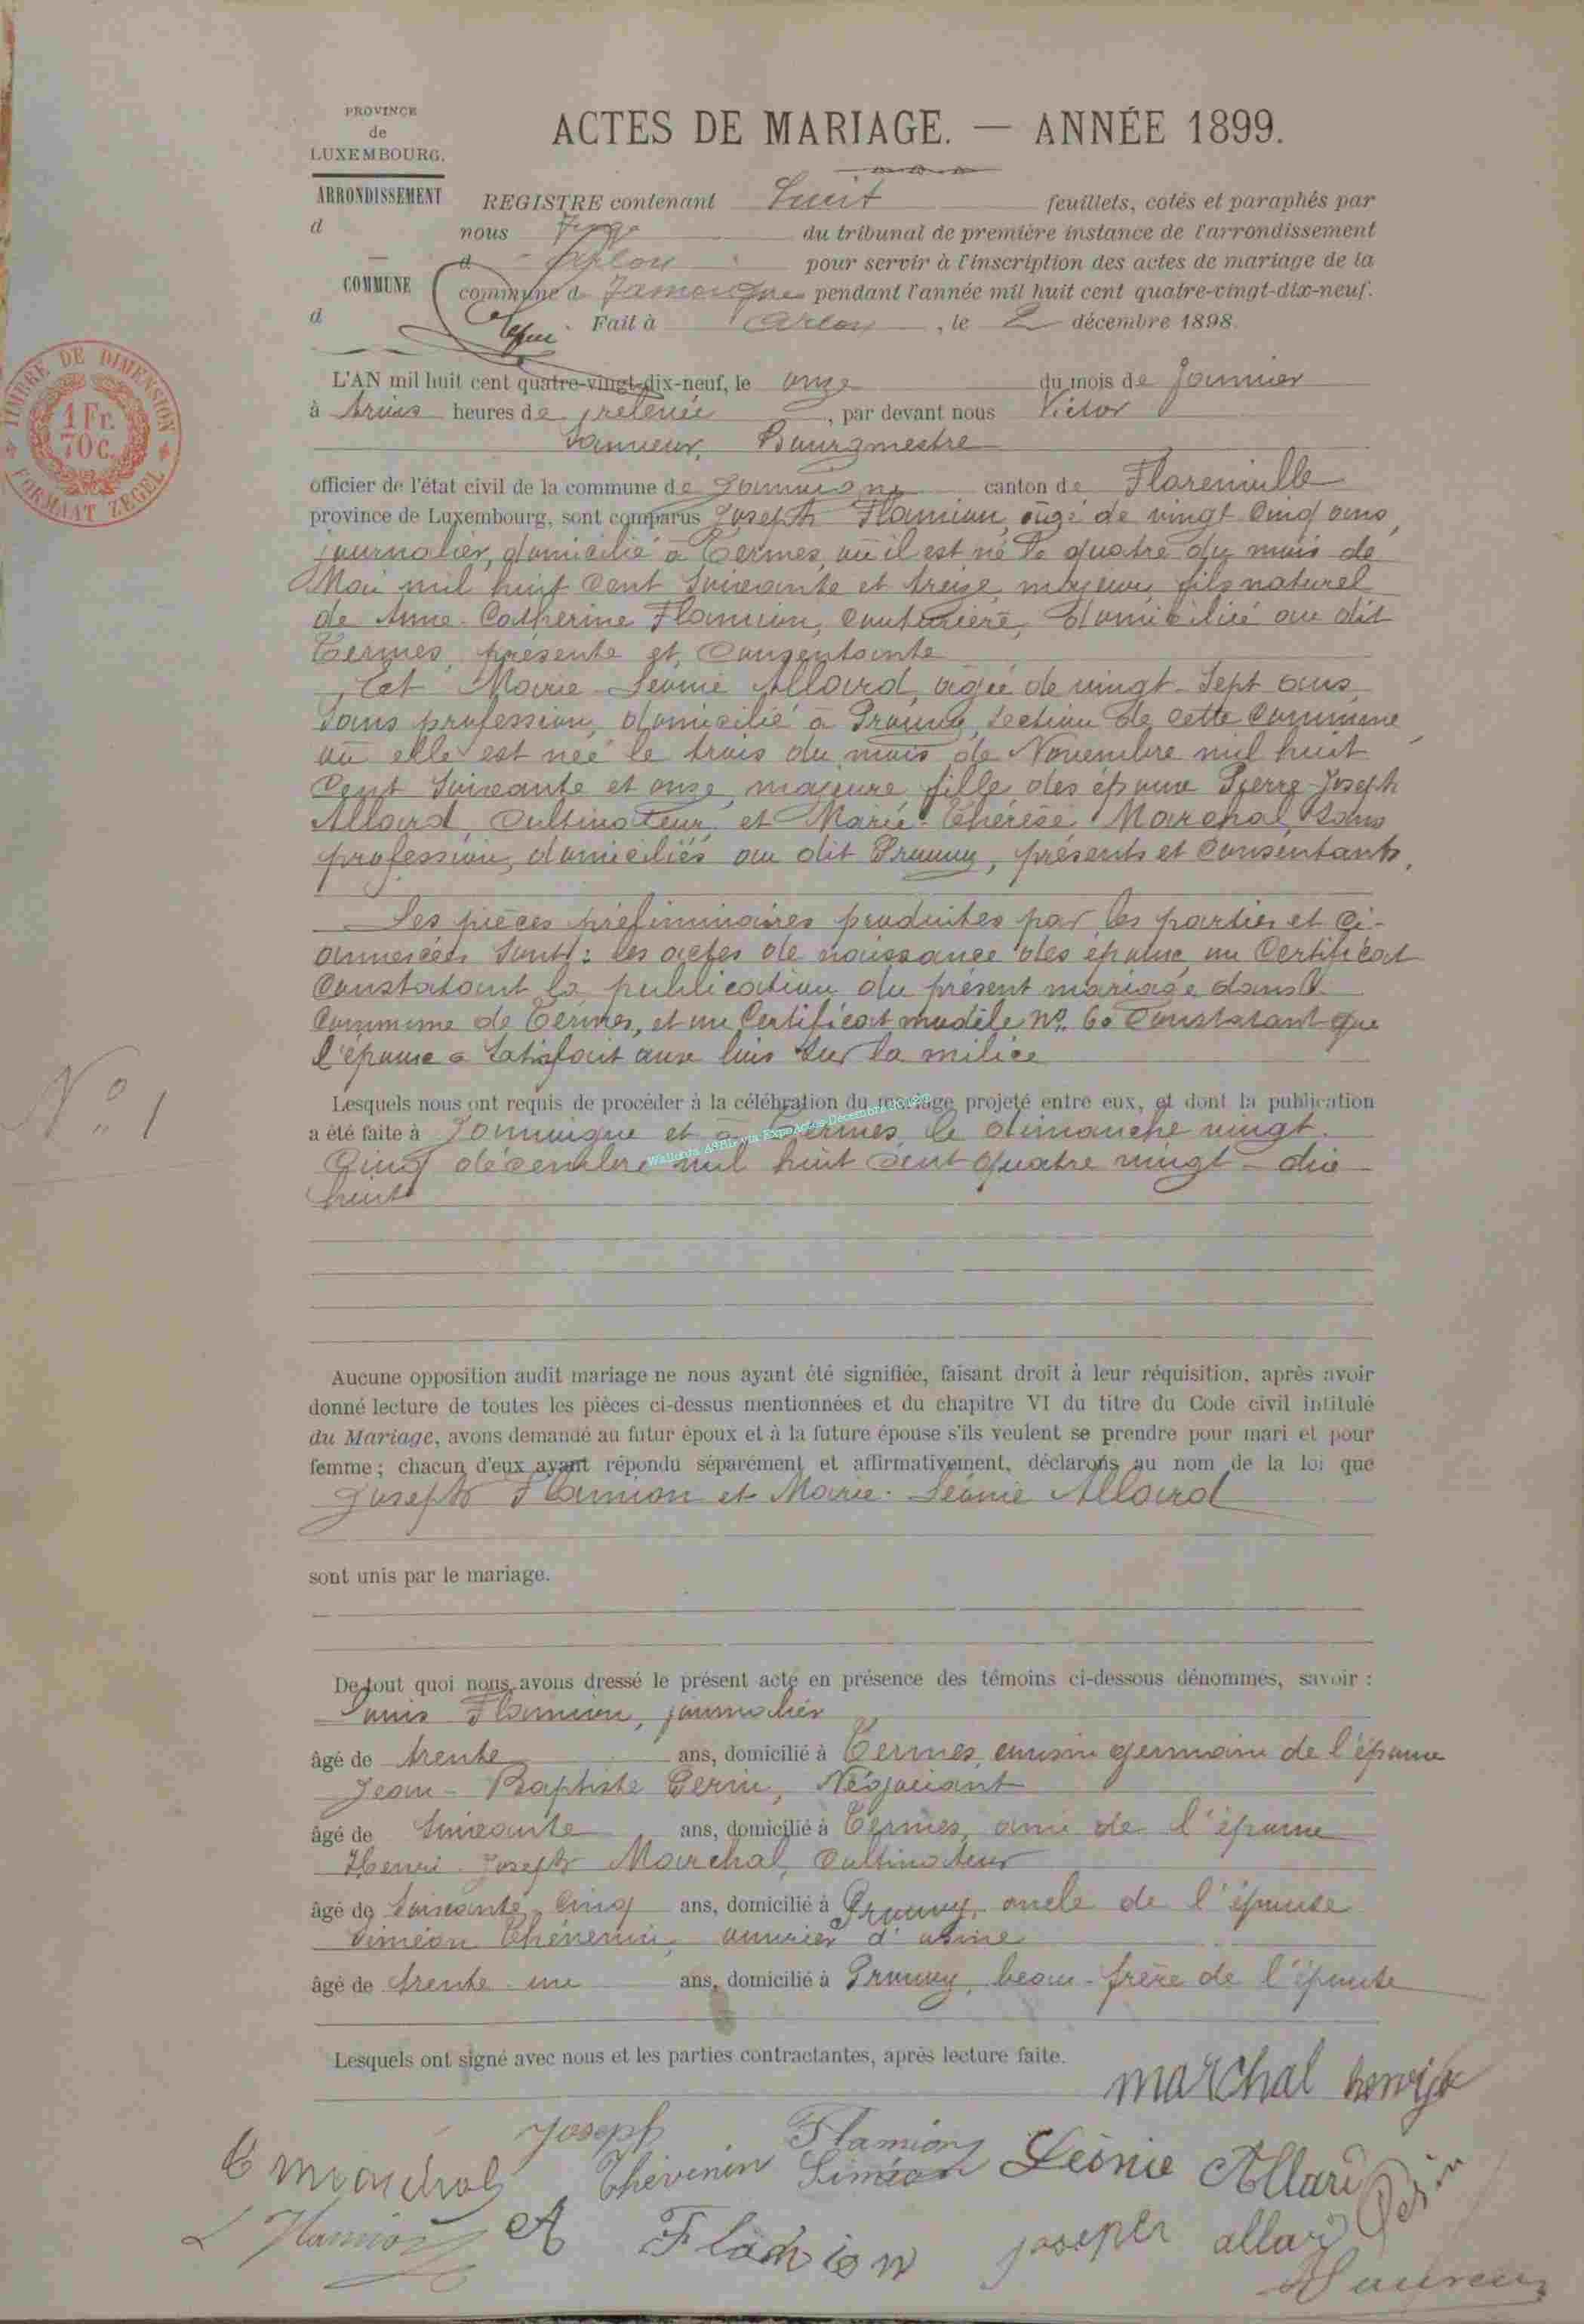 PROVINCE
de
LUXEMBOURG.
ARRONDISSEMENT
d
COMMUNE
d
ACTES DE MARIAGE. — ANNÉE 1899.
REGISTRE contenant huit feuillets, cotés et paraphés par
nous Juge du tribunal de première instance de l'arrondissement
d'Arlon pour servir à l'inscription des actes de mariage de la
commune de Jamoigne pendant l'année mil huit cent quatre-vingt-dix-neuf.
Fait à Arlon, le 2 décembre 1898.
TIMBRE DE DIMENSION
1 Fr.
70 c.
FORMAAT ZEGEL
L'AN mil huit cent quatre-vingt-dix-neuf, le onze du mois de Janvier
à trois heures de relevée, par devant nous Victor
Bourgmestre
officier de l'état civil de la commune de Jamoigne canton de Florenville
province de Luxembourg, sont comparus Joseph Flamion, âgé de vingt cinq ans,
journalier, domicilié à Termes, où il est né le quatre du mois de
Mai mil huit cent soixante et treize, majeur, fils naturel
de Anne-Catherine Flamion, couturière, domiciliée au dit
Termes, présente et consentante
Et Marie-Léonie Allard, âgée de vingt-sept ans
sans profession, domicilié à Prouvy, section de cette commune
où elle est née le trois du mois de Novembre mil huit
cent soixante et onze, majeure, fille des époux Pierre-Joseph
Allard, cultivateur, et Marie-Thérèse Marchal, sans
profession, domiciliés au dit Prouvy, présents et consentants.
Les pièces préliminaires produites par les parties et ci-
annexées sont: les actes de naissance des époux, un certificat
constatant la publication du présent mariage dans la
commune de Termes, et un certificat modèle No. 60 constatant que
l'époux a satisfait aux lois sur la milice
No. 1
Lesquels nous ont requis de procéder à la célébration du mariage projeté entre eux, et dont la publication
a été faite à Jamoigne et à Termes, le dimanche vingt
cinq décembre mil huit cent quatre vingt-dix
huit
Aucune opposition audit mariage ne nous ayant été signifiée, faisant droit à leur réquisition, après avoir
donné lecture de toutes les pièces ci-dessus mentionnées et du chapitre VI du titre du Code civil intitulé
du Mariage, avons demandé au futur époux et à la future épouse s'ils veulent se prendre pour mari et pour
femme; chacun d'eux ayant répondu séparément et affirmativement, déclarons au nom de la loi que
Joseph Flamion et Marie-Léonie Allard
sont unis par le mariage.
De tout quoi nous avons dressé le présent acte en présence des témoins ci-dessous dénommés, savoir :
Louis Flamion, journalier
âgé de trente ans, domicilié à Termes, cousin germain de l'époux
Jean-Baptiste Perin, Négociant
âgé de soixante ans, domicilié à Termes, ami de l'époux
Henri-Joseph Marchal, cultivateur
âgé de soixante cinq ans, domicilié à Prouvy, oncle de l'épouse
Siméon Thévenin, ouvrier d'usine
âgé de trente-un ans, domicilié à Prouvy, beau-frère de l'épouse
Lesquels ont signé avec nous et les parties contractantes, après lecture faite.
marchal
Joseph Flamion
Marchal
Thévenin Siméon
Léonie Allard
L Flamion
A Flamion
joseph allard